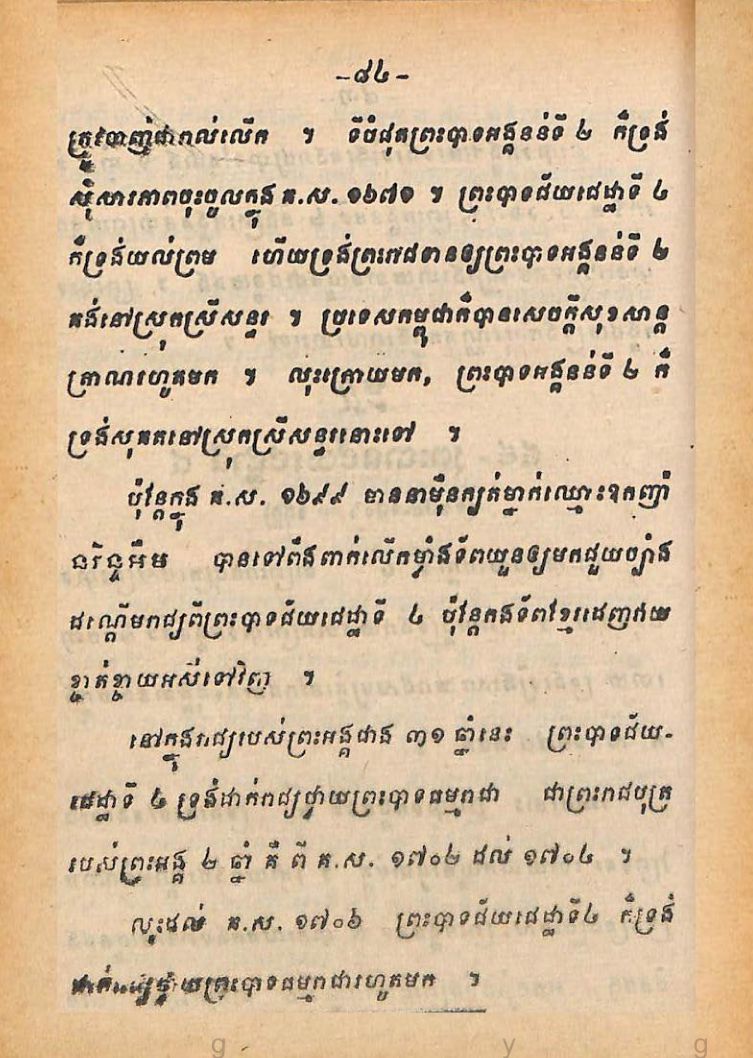 -៨៤-
ត្រូវបាញ់ជាកល់លើក ។ ទីបំផុតព្រះបាទអង្គនន់ទី ២ ក៏ទ្រង់
ស៊ុំសារភាពចុះចូលក្នុង គ.ស. ១៦៧១ ។ ព្រះបាទជ័យជេដ្ឋាទី ៤
ក៏ទ្រង់យល់ព្រម ហើយទ្រង់ព្រះរាជទានឲ្យព្រះបាទអង្គនន់ទី ២
គង់នៅស្រុកស្រីសន្ធរ ។ ប្រទេសកម្ពុជាក៏បានសេចក្ដីសុខសាន្ត
ត្រាណរហូតមក ។ លុះក្រោយមក, ព្រះបាទអង្គនន់ទី ២ ក៏
ទ្រង់សុគតនៅស្រុកស្រីសន្ធរនោះទៅ ។
ប៉ុន្តែក្នុង គ.ស. ១៦៩៩ មាននាម៉ឺនក្បត់ម្នាក់ឈ្មោះឧកញ៉ា
នរិន្ទអឹម បានទៅពឹងពាក់លើកម្លាំងទ័ពយួនឲ្យមកជួយច្បាំង
ដណ្ដើមរាជ្យពីព្រះបាទជ័យជេដ្ឋាទី ៤ ប៉ុន្តែកងទ័ពខ្មែរដេញវាយ
ខ្ចាត់ខ្ចាយអស់ទៅវិញ ។
នៅក្នុងរាជ្យរបស់ព្រះអង្គជាង ៣១ ឆ្នាំនេះ ព្រះបាទជ័យ-
ជេដ្ឋាទី ៤ ទ្រង់ដាក់រាជ្យថ្វាយព្រះបាទធម្មរាជា ជាព្រះរាជបុត្រ
របស់ព្រះអង្គ ២ ឆ្នាំ គឺ ពី គ.ស. ១៧០២ ដល់ ១៧០៤ ។
លុះដល់ គ.ស. ១៧០៦ ព្រះបាទជ័យជេដ្ឋាទី៤ ក៏ទ្រង់
ដាក់រាជ្យថ្វាយព្រះបាទធម្មរាជារហូតមក ។
g y g